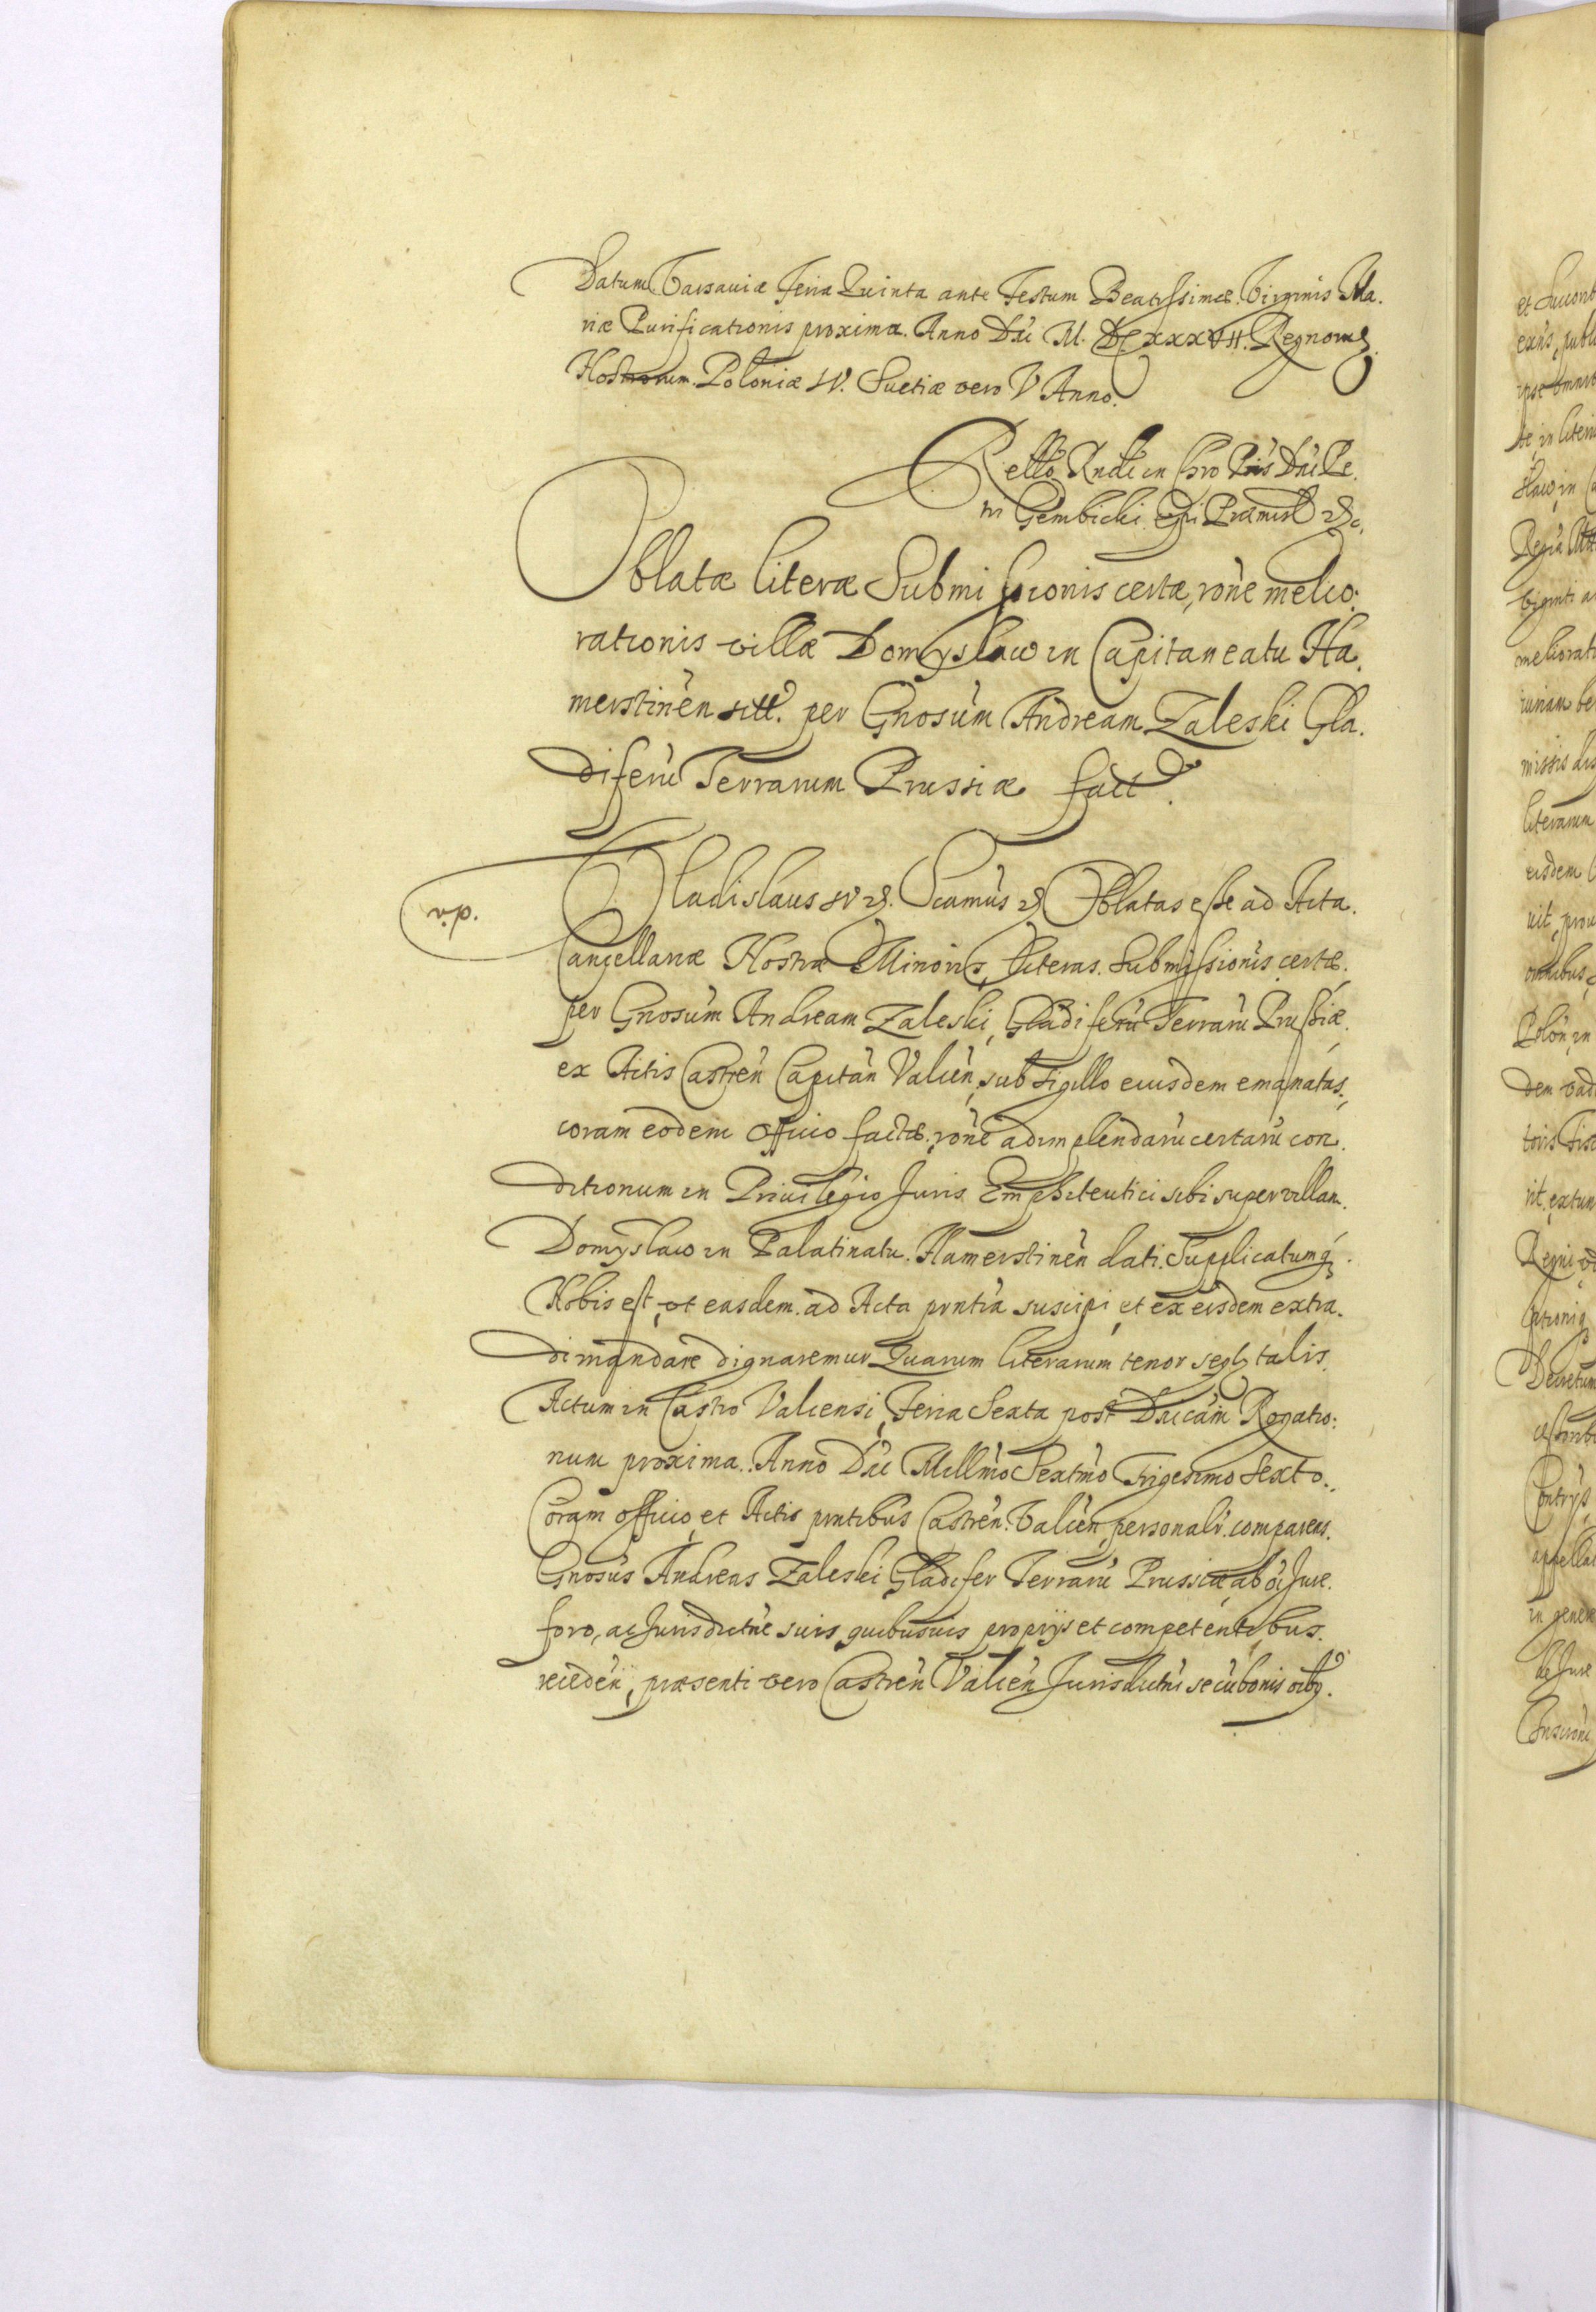 Datum Varsaviæ Feria Quinta ante Festum Beatissimæ Virginis Ma.
riæ Purificationis proxima. Anno Dńi M. DCXXXVII. Regnorum
Nostrorum Poloniæ IV. Suetiæ vero V Anno.
Rello Rndi in Chro Pris Dni Pe.
tri Gembicki Epi Præmisl etc.
Oblatæ literæ Submissionis certæ, rońe melio:
rationis villæ Domyslaw in Capitaneatu Ha.
merstinen sitt. per Gnosum Andream Zaleski Gla.
diferu Terrarum Prussiæ fact.
Vladislaus IV etc. Scamus etc Oblatas esse ad Acta.
Cancellariæ Nostræ Minoris, Literas. Submissionis certæ.
per Gnosum Andream Zaleski, Gladiferu Terraru Prussiæ.
ex Actis Castren Capitan Valcen, sub sigillo eiusdem emanatas,
coram eodem officio factæ, rone adimplendaru certaru con.
ditionum in Privilegio Juris Emphiteutici sibi super villam.
Domyslaw in Palatinatu. Hamerstinen dati. Supplicatumq
Nobis est, ut easdem ad Acta pntia suscipi, et ex eisdem extra.
di mandare dignaremur Quarum literarum tenor seqt talis.
Actum in Castro Valcensi, Feria Sexta post Dnicam Rogatio:
num proxima. Anno Dni Millmo Sextmo Trigesimo Sexto.
Coram officio, et Actis pntibus Castren. Valcen, personalr. comparens.
Gnosus Andreas Zaleski Gladifer Terraru Prussiæ, ab oi Jure.
foro, ac Jurisdictne suis quibusuis proprijs et competentibus.
recedeń, præsenti vero Castren Valcen Jurisdictni se cu bonis oibq.